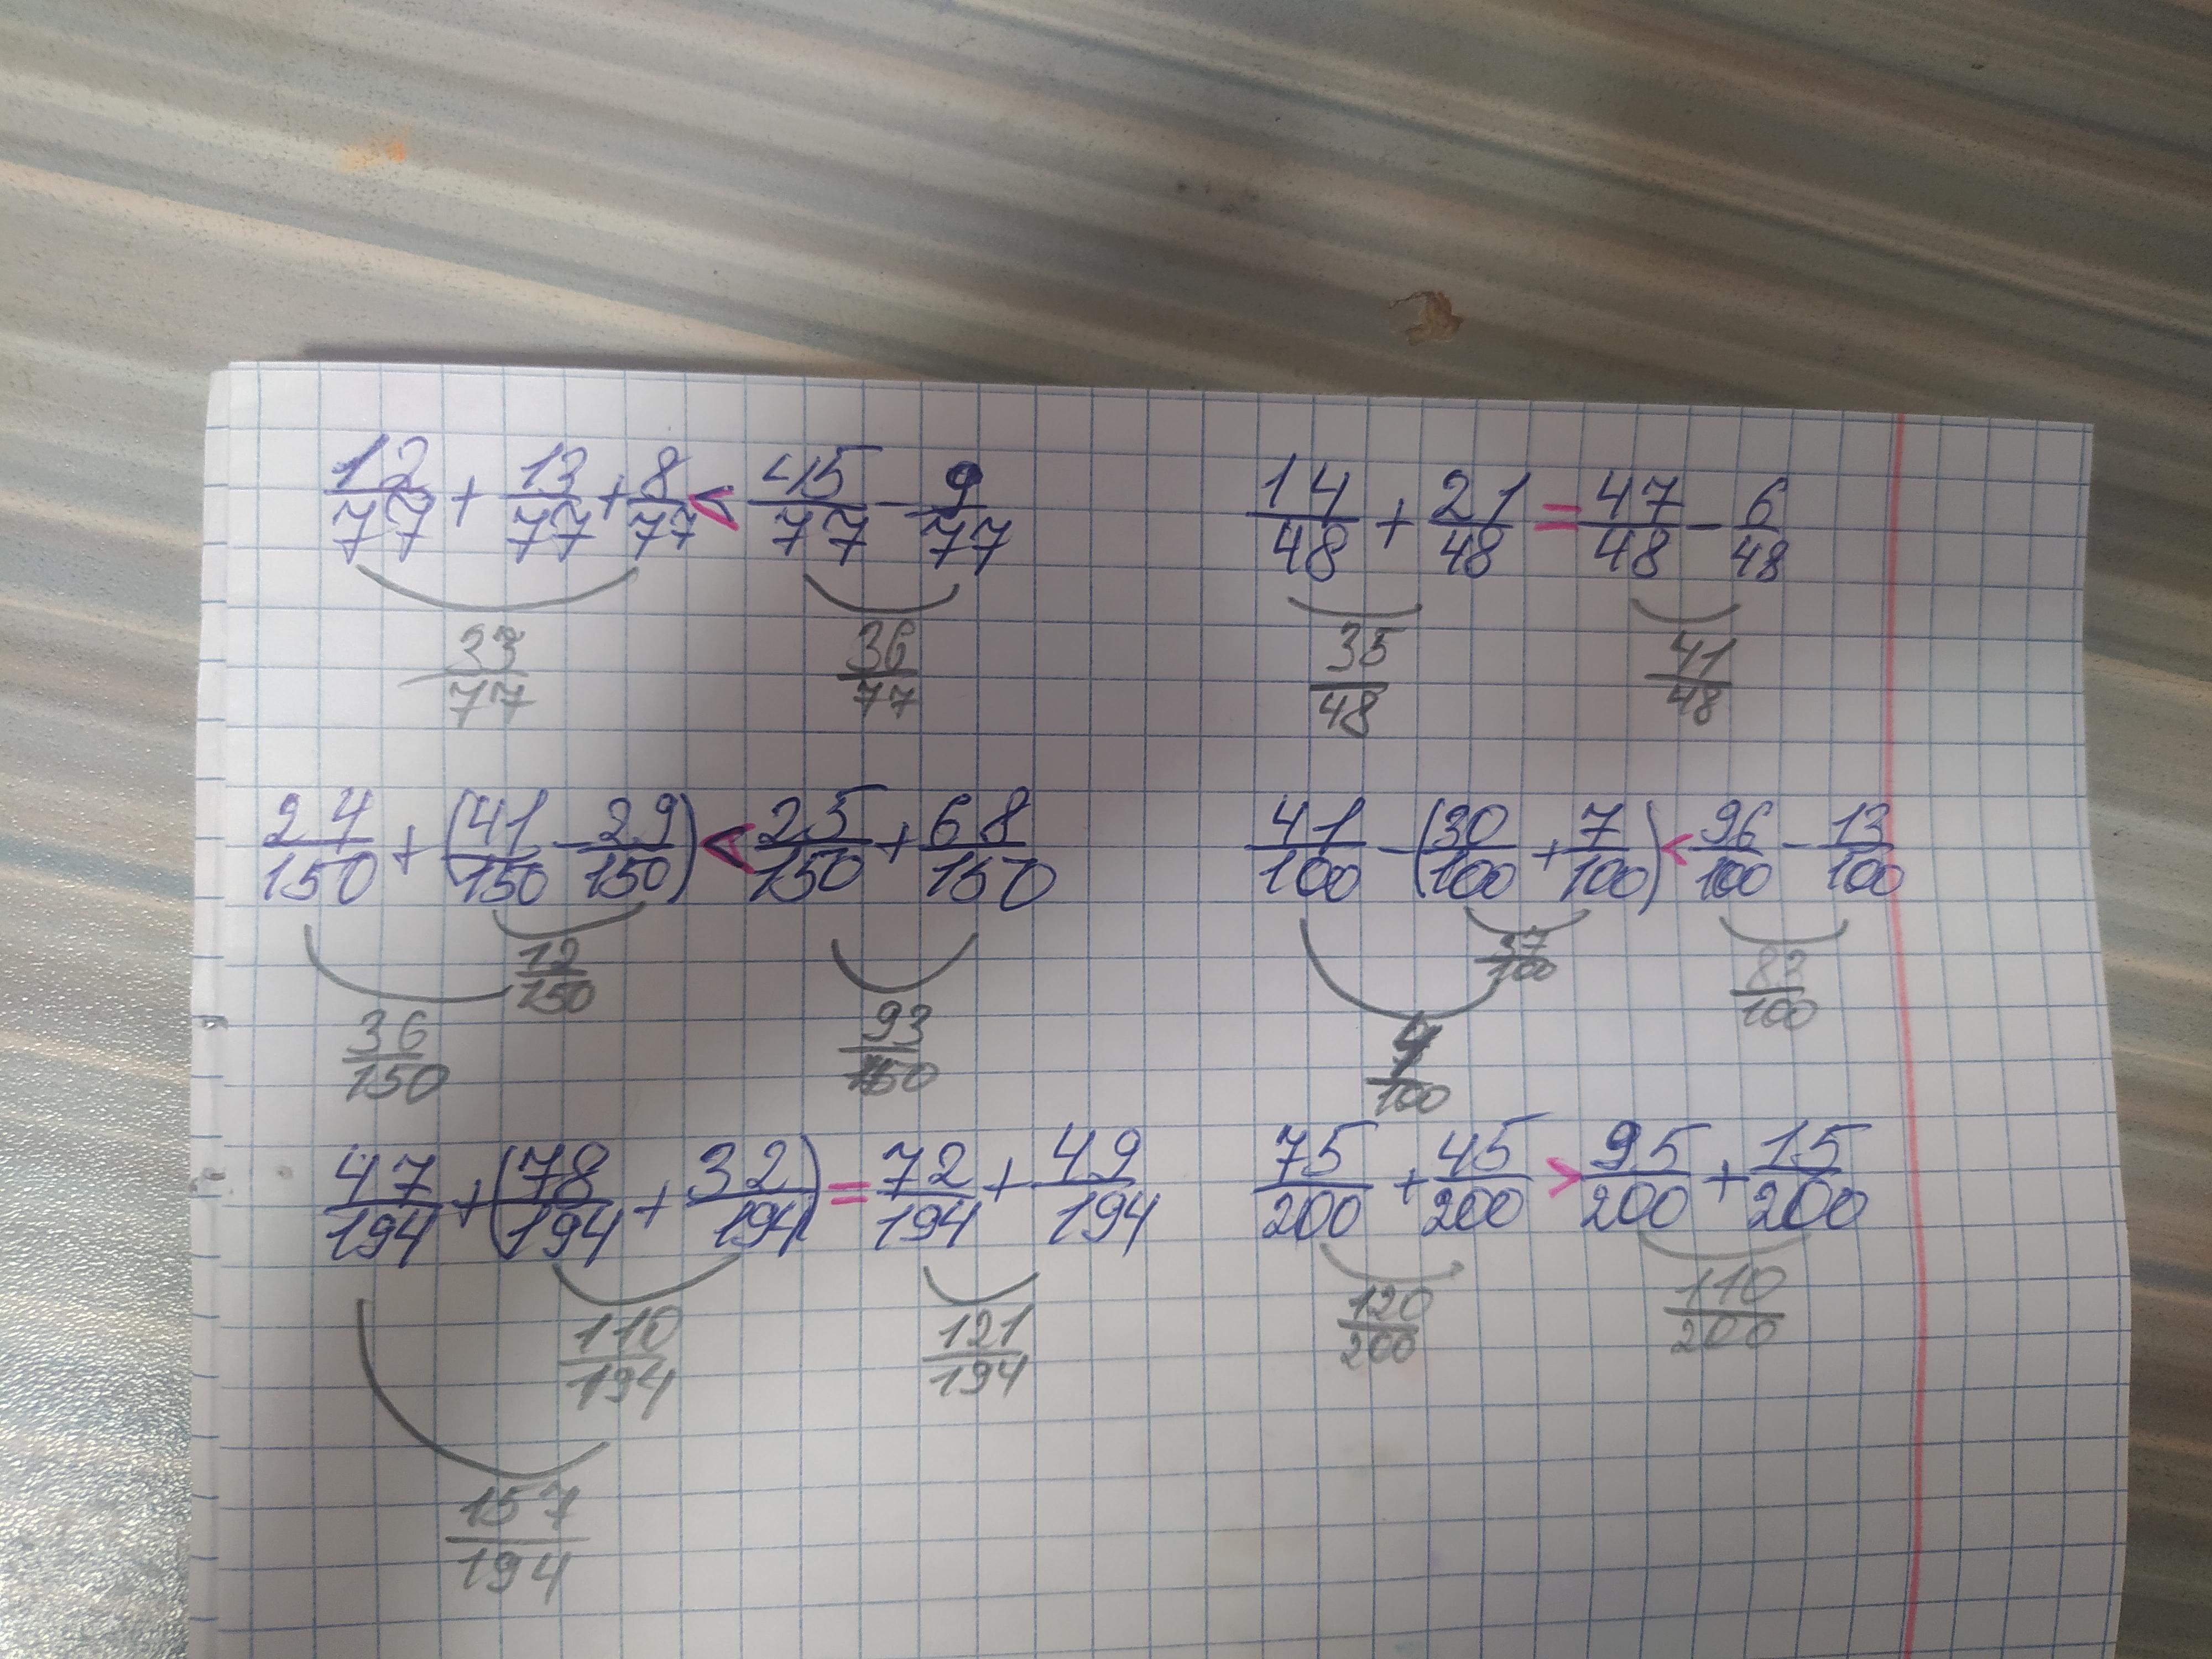 12/77 + 13/77 + 8/77 < 45/77 - 9/77
33/77 36/77
14/48 + 21/48 = 47/48 - 6/48
35/48 41/48
24/150 + (41/150 - 29/150) < 25/150 + 68/150
12/150
36/150 93/150
41/100 - (30/100 + 7/100) < 96/100 - 13/100
37/100 83/100
4/100
47/194 + (78/194 + 32/194) = 72/194 + 49/194
110/194 121/194
157/194
75/200 + 45/200 > 95/200 + 15/200
120/200 110/200